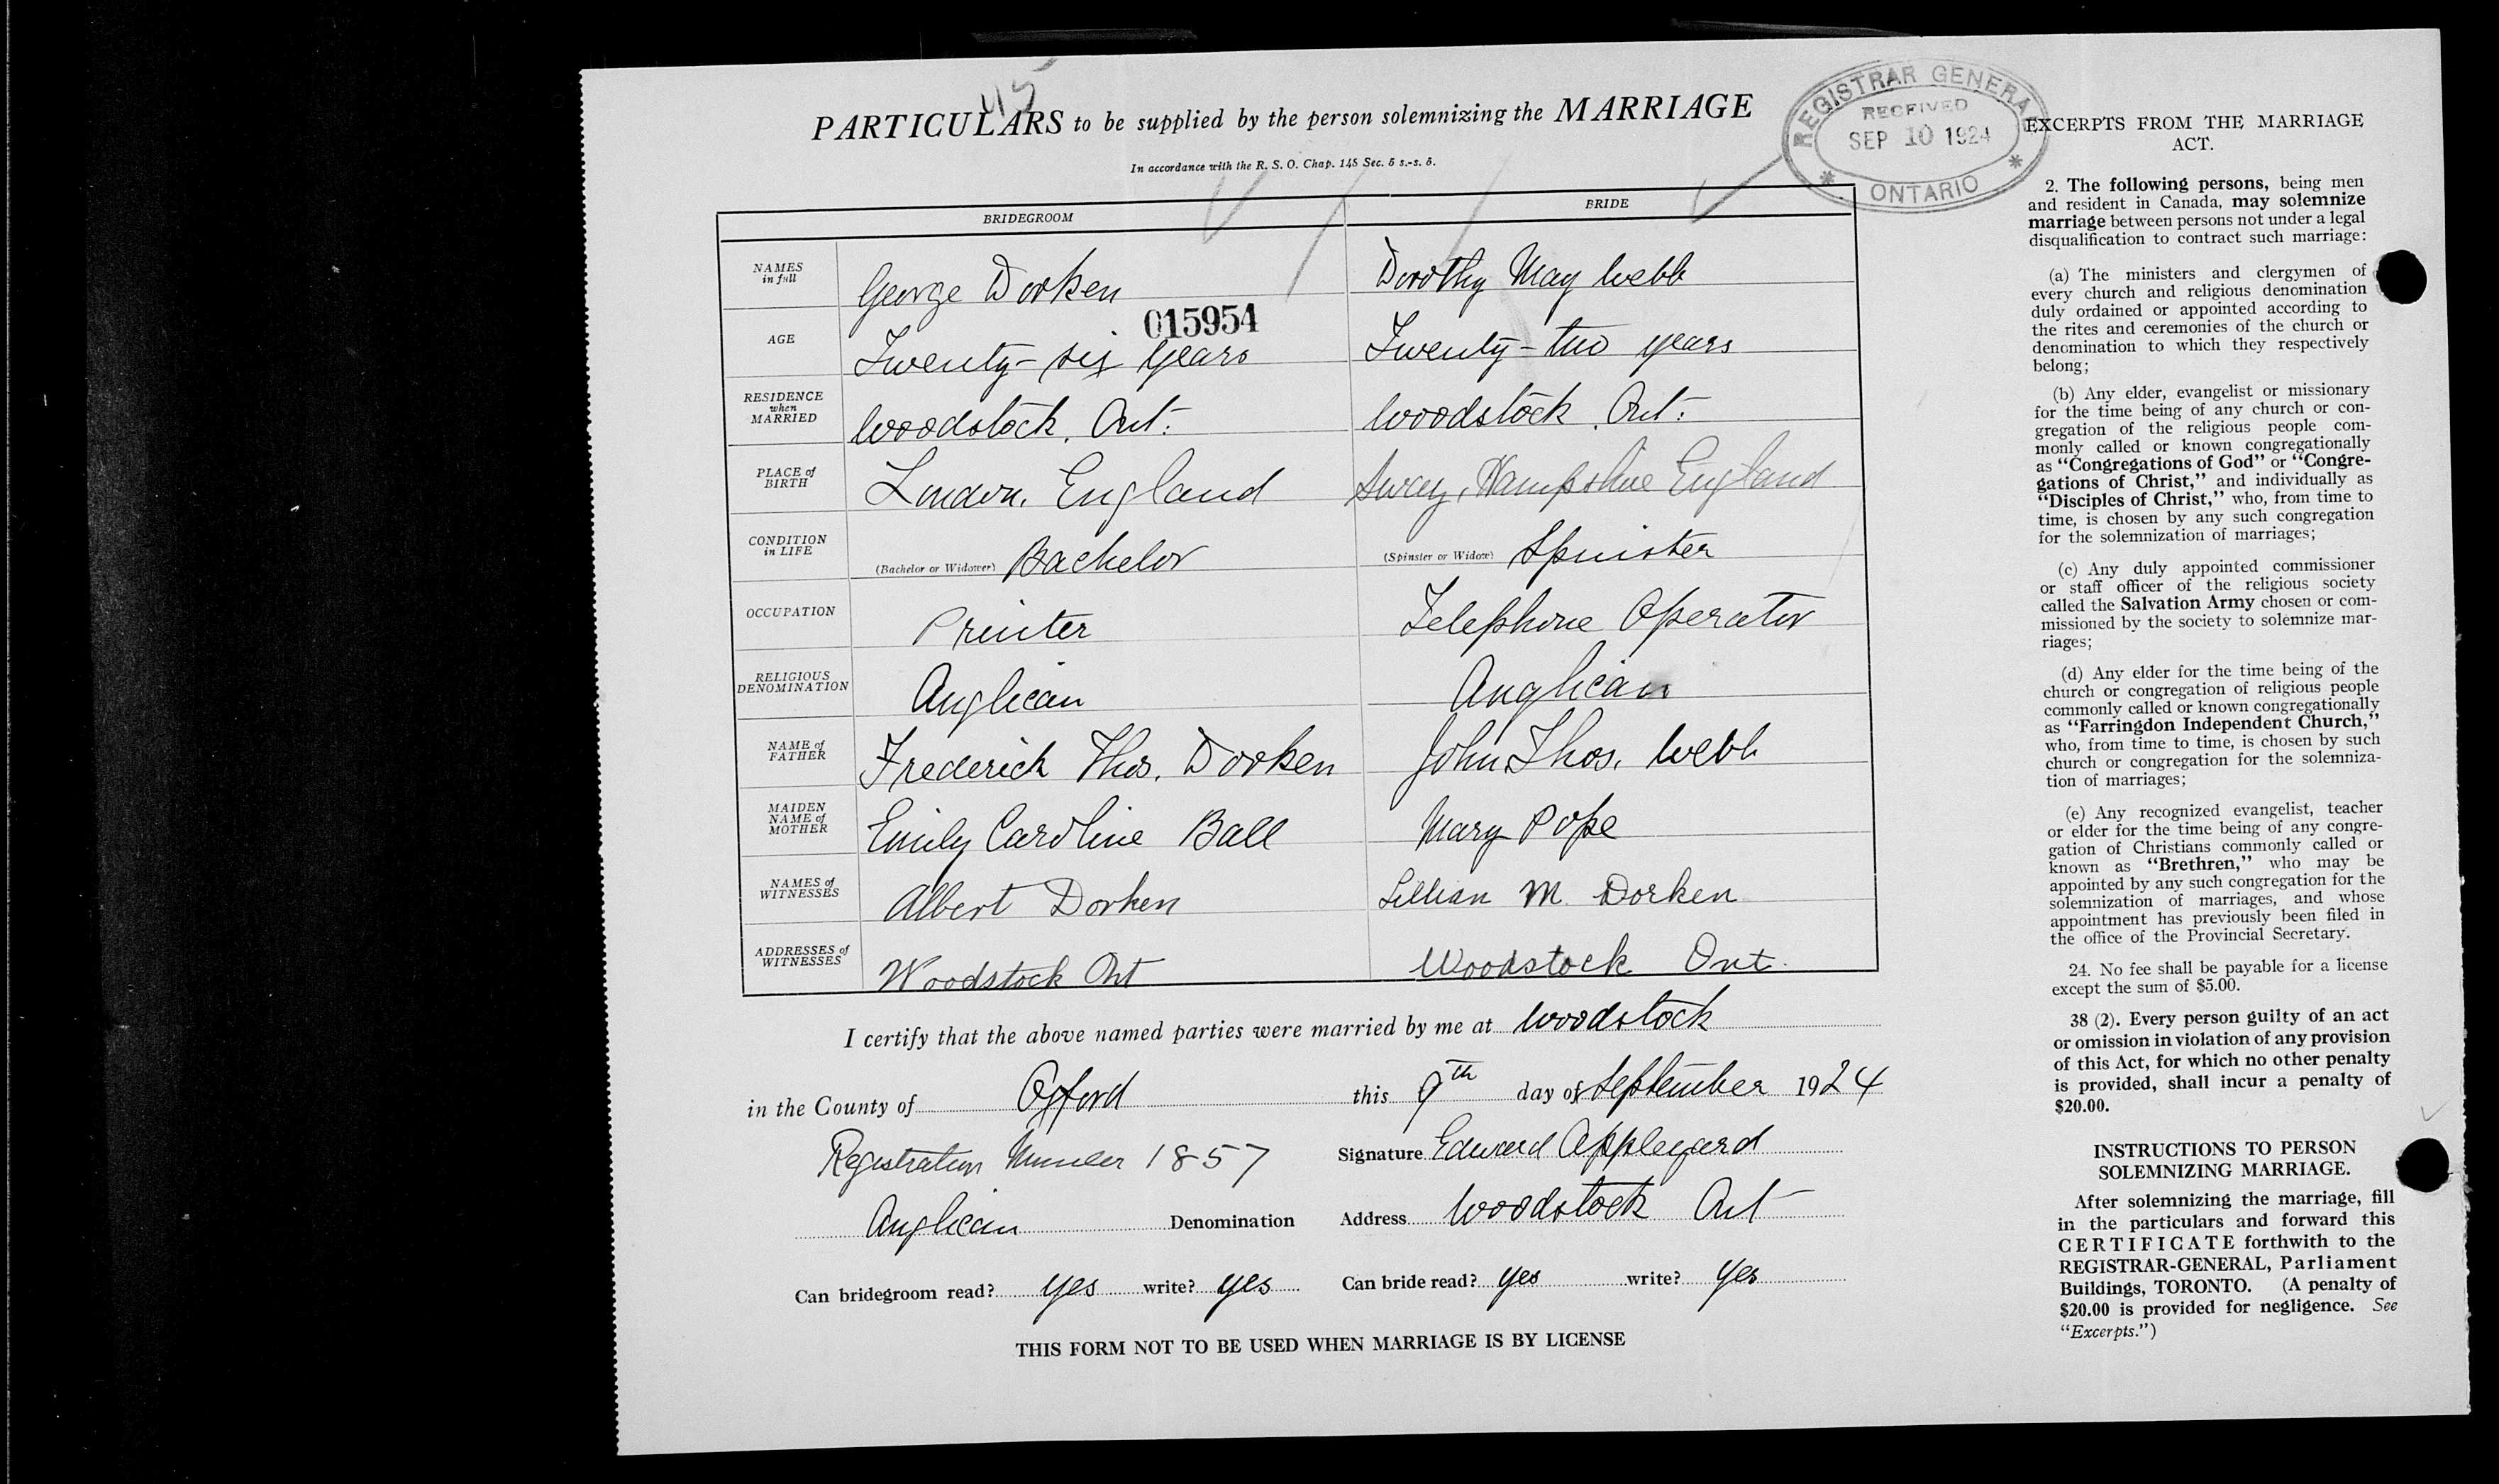 45
PARTICULARS to be supplied by the person solemnizing the MARRIAGE
In accordance with the R. S. O. Chap. 148 Sec. 5 s.-s. 5.
REGISTRAR GENERAL
RECEIVED
SEP 10 1924
ONTARIO
BRIDEGROOM BRIDE
NAMES in full George Dorken Dorothy May Webb
015954
AGE Twenty-six years Twenty-two years
RESIDENCE when MARRIED Woodstock, Ont. Woodstock, Ont.
PLACE of BIRTH London, England Sway, Hampshire England
CONDITION in LIFE (Bachelor or Widower) Bachelor (Spinster or Widow) Spinster
OCCUPATION Printer Telephone Operator
RELIGIOUS DENOMINATION Anglican Anglican
NAME of FATHER Frederick Thos. Dorken John Thos. Webb
MAIDEN NAME of MOTHER Emily Caroline Ball Mary Pope
NAMES of WITNESSES Albert Dorken Lillian M. Dorken
ADDRESSES of WITNESSES Woodstock Ont Woodstock Ont.
I certify that the above named parties were married by me at Woodstock
in the County of Oxford this 9th day of September 1924
Registration Number 1857 Signature Edward Appleyard
Anglican Denomination Address Woodstock Ont
Can bridegroom read? yes write? yes Can bride read? yes write? yes
THIS FORM NOT TO BE USED WHEN MARRIAGE IS BY LICENSE
EXCERPTS FROM THE MARRIAGE
ACT.
2. The following persons, being men
and resident in Canada, may solemnize
marriage between persons not under a legal
disqualification to contract such marriage:
(a) The ministers and clergymen of
every church and religious denomination
duly ordained or appointed according to
the rites and ceremonies of the church or
denomination to which they respectively
belong;
(b) Any elder, evangelist or missionary
for the time being of any church or con-
gregation of the religious people com-
monly called or known congregationally
as "Congregations of God" or "Congre-
gations of Christ," and individually as
"Disciples of Christ," who, from time to
time, is chosen by any such congregation
for the solemnization of marriages;
(c) Any duly appointed commissioner
or staff officer of the religious society
called the Salvation Army chosen or com-
missioned by the society to solemnize mar-
riages;
(d) Any elder for the time being of the
church or congregation of religious people
commonly called or known congregationally
as "Farringdon Independent Church,"
who, from time to time, is chosen by such
church or congregation for the solemniza-
tion of marriages;
(e) Any recognized evangelist, teacher
or elder for the time being of any congre-
gation of Christians commonly called or
known as "Brethren," who may be
appointed by any such congregation for the
solemnization of marriages, and whose
appointment has previously been filed in
the office of the Provincial Secretary.
24. No fee shall be payable for a license
except the sum of $5.00.
38 (2). Every person guilty of an act
or omission in violation of any provision
of this Act, for which no other penalty
is provided, shall incur a penalty of
$20.00.
INSTRUCTIONS TO PERSON
SOLEMNIZING MARRIAGE.
After solemnizing the marriage, fill
in the particulars and forward this
CERTIFICATE forthwith to the
REGISTRAR-GENERAL, Parliament
Buildings, TORONTO. (A penalty of
$20.00 is provided for negligence. See
"Excerpts.")